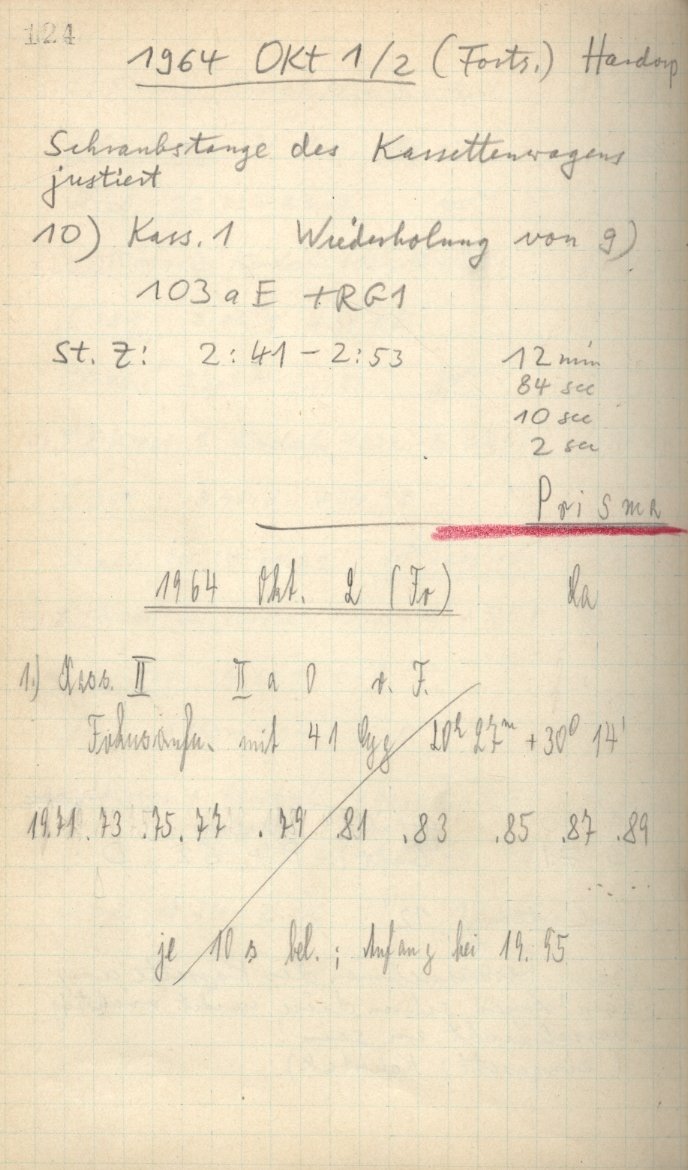 124
1964 OKt 1/2 (Forts.) Hardorp
Schraubstange des Kassettenwagens
justiert
10) Kass. 1 Wiederholung von 9)
103 a E + RG1
St. Z: 2:41 – 2:53 12 min
84 sec
10 sec
2 sec
Prisma
1964 Okt. 2 (Fr)
1.) Kass. II II a O v. F.
Fokusaufn. mit 41 Cyg 20h 27m + 30° 14'
19.71 .73 .75 .77 .79 .81 .83 .85 .87 .89
je 10 s bel.; Anfang bei 19.95